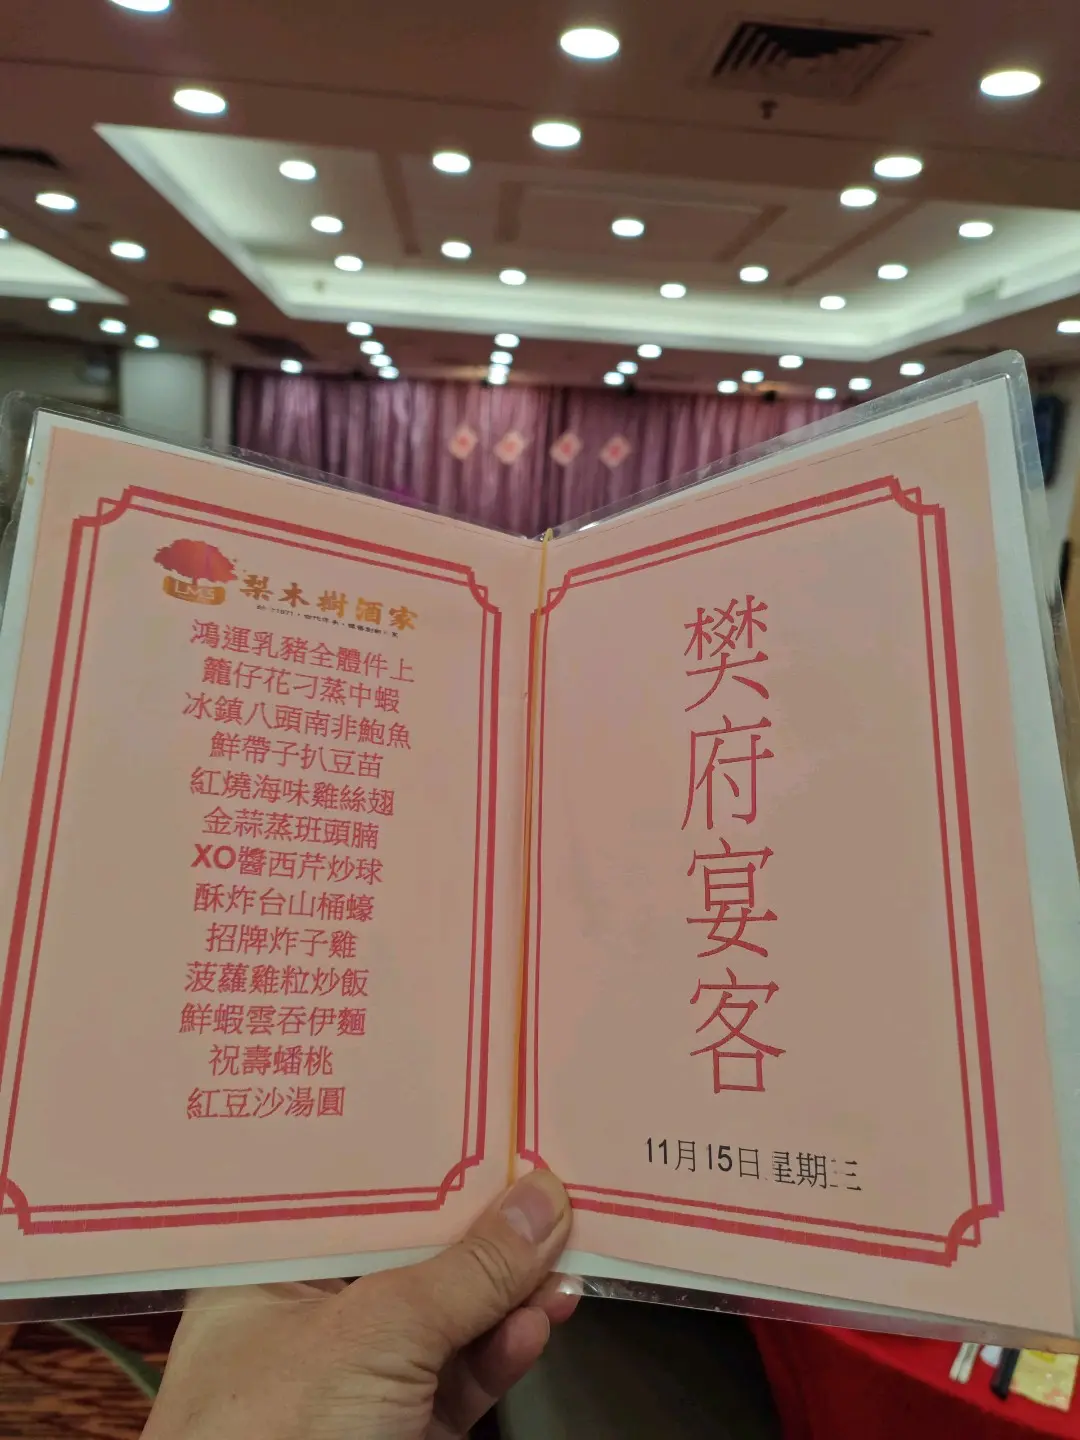 LMS
梨木樹酒家
鴻運乳豬全體件上
籠仔花刁蒸中蝦
冰鎮八頭南非鮑魚
鮮帶子扒豆苗
紅燒海味雞絲翅
金蒜蒸班頭腩
XO醬西芹炒球
酥炸台山桶蠔
招牌炸子雞
菠蘿雞粒炒飯
鮮蝦雲吞伊麵
祝壽蟠桃
紅豆沙湯圓
樊府宴客
11月15日 星期三